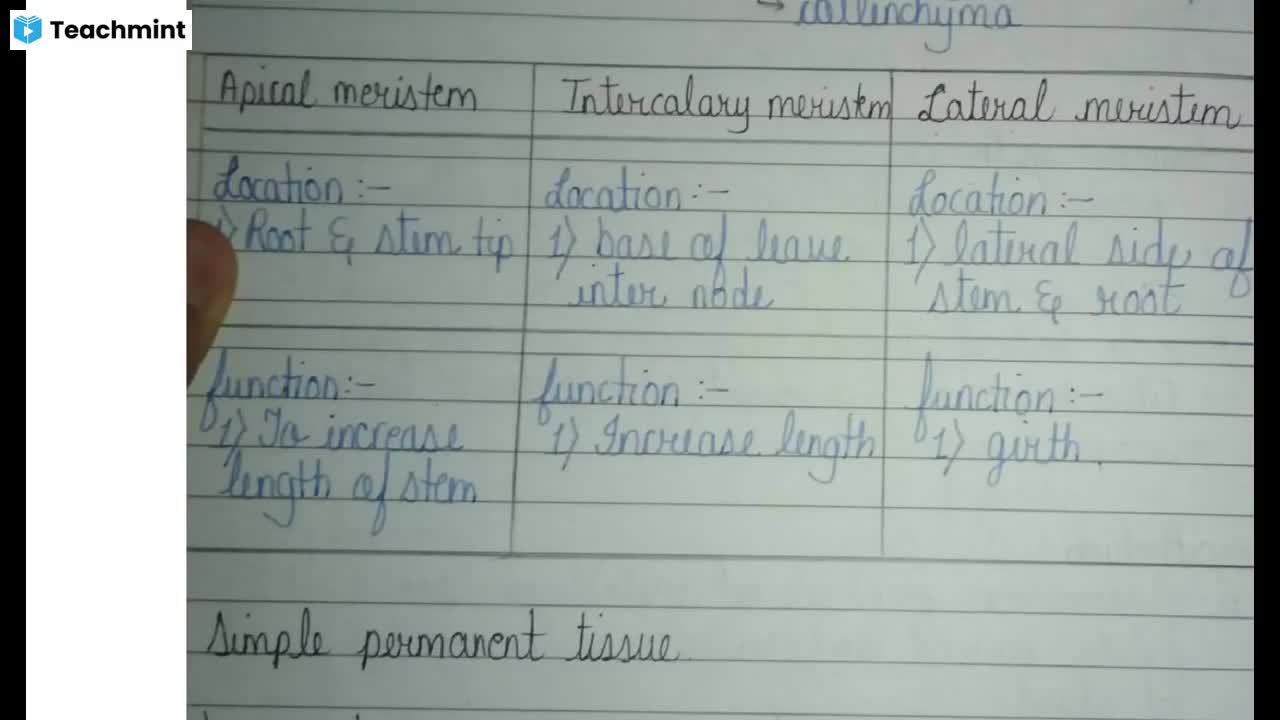 Teachmint
→ collenchyma
Apical meristem
Intercalary meristem
Lateral meristem
Location :-
1) Root & stem tip
Location :-
1) base of leave
inter node
Location :-
1) lateral side of
stem & root
function:-
1) To increase
length of stem
function :-
1) Increase length
function :-
1) girth.
Simple permanent tissue